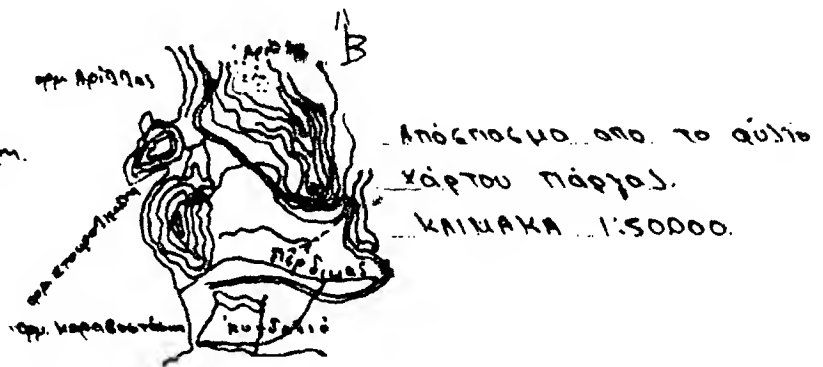 Β
ορμ Αρίλλας
Απόσπασμα απο το φύλλο
χάρτου Πάργας.
ΚΛΙΜΑΚΑ 1:50000.
Πέρδικας
ορμ. Καραβοστάσι